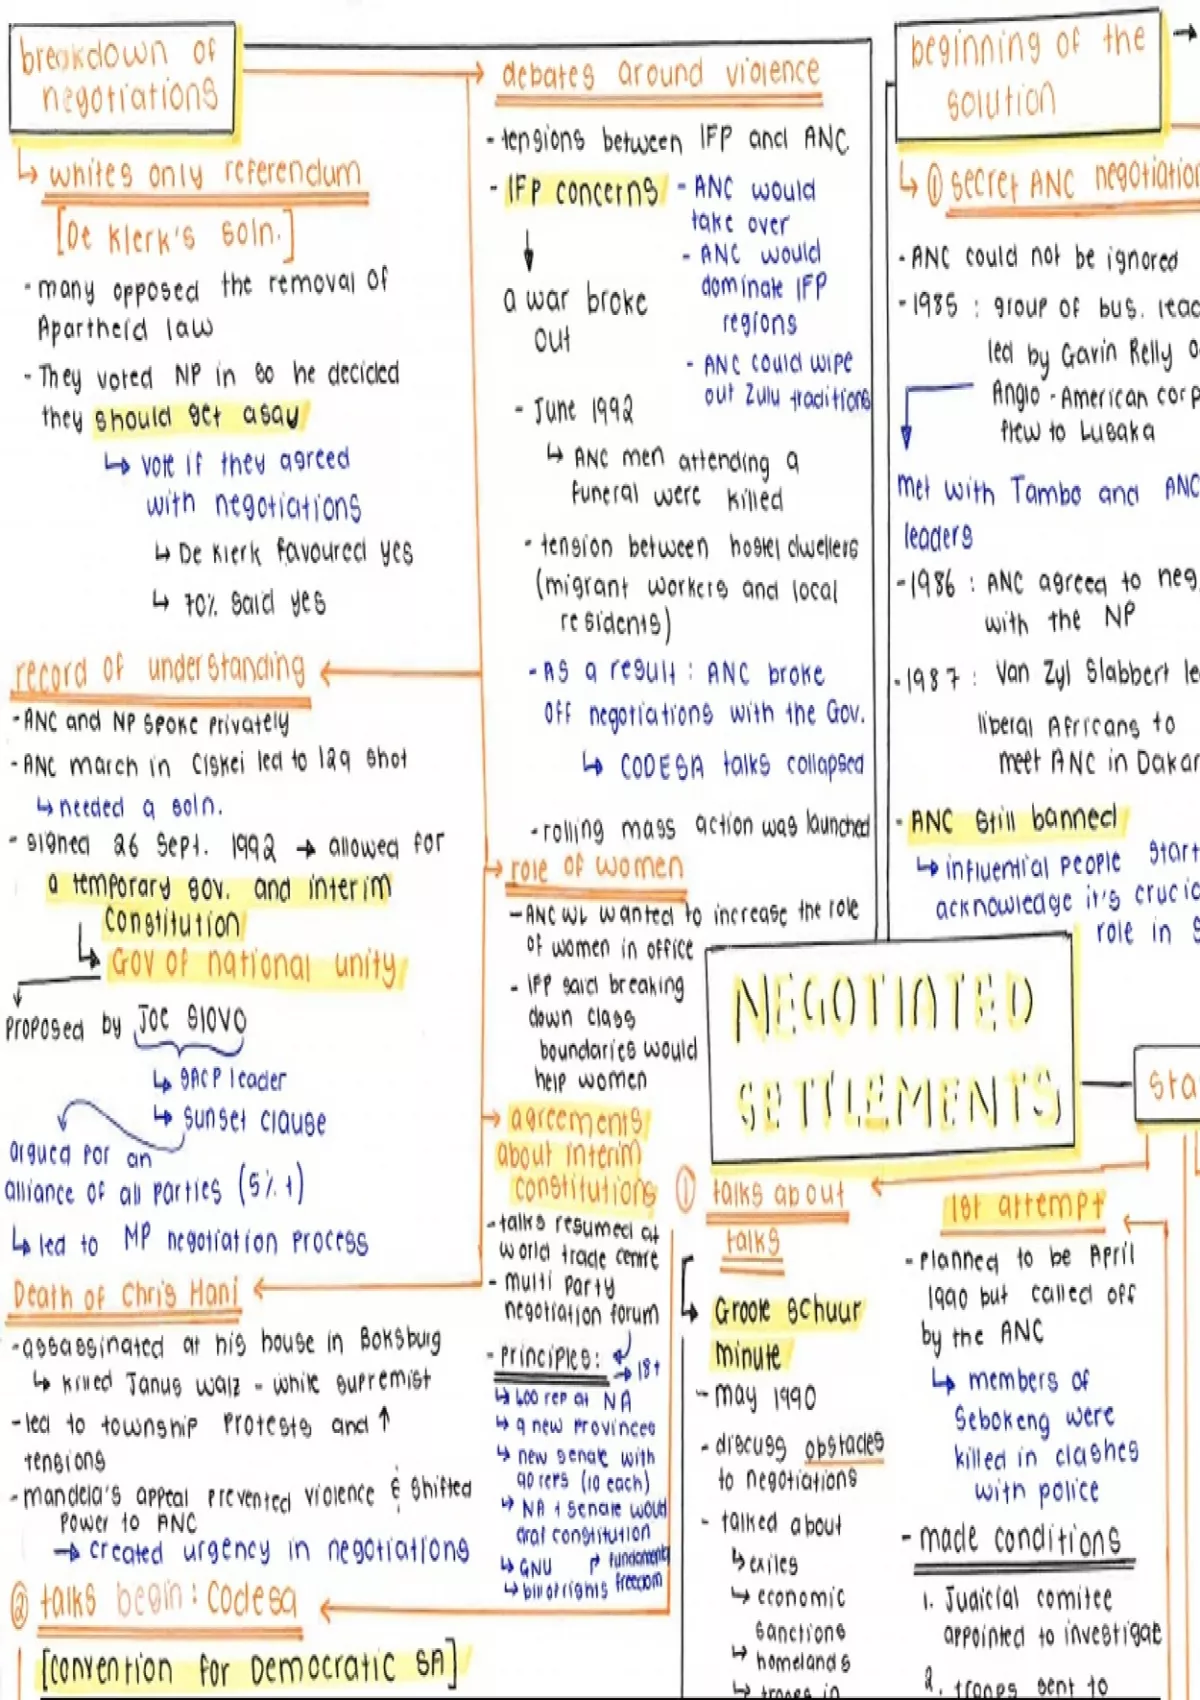 breakdown of
negotiations
↳ whites only referendum
[De Klerk's soln.]
- many opposed the removal of
Apartheid law
- They voted NP in so he decided
they should get a say
↳ vote if they agreed
with negotiations
↳ De Klerk favoured yes
↳ 70% said yes
record of understanding
- ANC and NP spoke privately
- ANC march in Ciskei led to 129 shot
↳ needed a soln.
- signed 26 Sept. 1992 → allowed for
a temporary gov. and interim
constitution
↳ Gov of national unity
proposed by Joe Slovo
↳ SACP leader
↳ sunset clause
argued for an
alliance of all parties (5% +)
↳ led to MP negotiation process
Death of Chris Hani
- assassinated at his house in Boksburg
↳ killed Janus Walz - white supremist
- led to township protests and ↑
tensions
- mandela's appeal prevented violence & shifted
power to ANC
→ created urgency in negotiations
② talks begin: Codesa
[Convention for Democratic SA]
debates around violence
- tensions between IFP and ANC
- IFP concerns
- ANC would
take over
- ANC would
dominate IFP
regions
- ANC could wipe
out Zulu traditions
a war broke
out
- June 1992
↳ ANC men attending a
funeral were killed
- tension between hostel dwellers
(migrant workers and local
residents)
- As a result: ANC broke
off negotiations with the Gov.
↳ CODESA talks collapsed
- rolling mass action was launched
role of women
- ANC WL wanted to increase the role
of women in office
- IFP said breaking
down class
boundaries would
help women
agreements
about interim
constitutions
- talks resumed at
world trade centre
- multi party
negotiation forum
- principles:
→ 1st
↳ 400 rep at NA
↳ 9 new provinces
↳ new senate with
90 reps (10 each)
↳ NA + senate would
draf constitution
↳ GNU
↳ bill of rights
fundamental
freedom
NEGOTIATED
SETTLEMENTS
① talks about
talks
↳ Groote schuur
minute
- may 1990
- discuss obstacles
to negotiations
- talked about
↳ exiles
↳ economic
sanctions
↳ homelands
↳ troops in
beginning of the
solution
↳ ① secret ANC negotiation
- ANC could not be ignored
- 1985 : group of bus. leac
led by Gavin Relly o
Anglo-American corp
flew to Lusaka
met with Tambo and ANC
leaders
- 1986 : ANC agreed to neg
with the NP
- 1987 : Van Zyl Slabbert le
liberal Africans to
meet ANC in Dakar
- ANC still banned
↳ influential people start
acknowledge it's crucia
role in S
sta
1st attempt
- planned to be April
1990 but called off
by the ANC
↳ members of
Sebokeng were
killed in clashes
with police
- made conditions
1. Judicial comitee
appointed to investigat
2. troops sent to